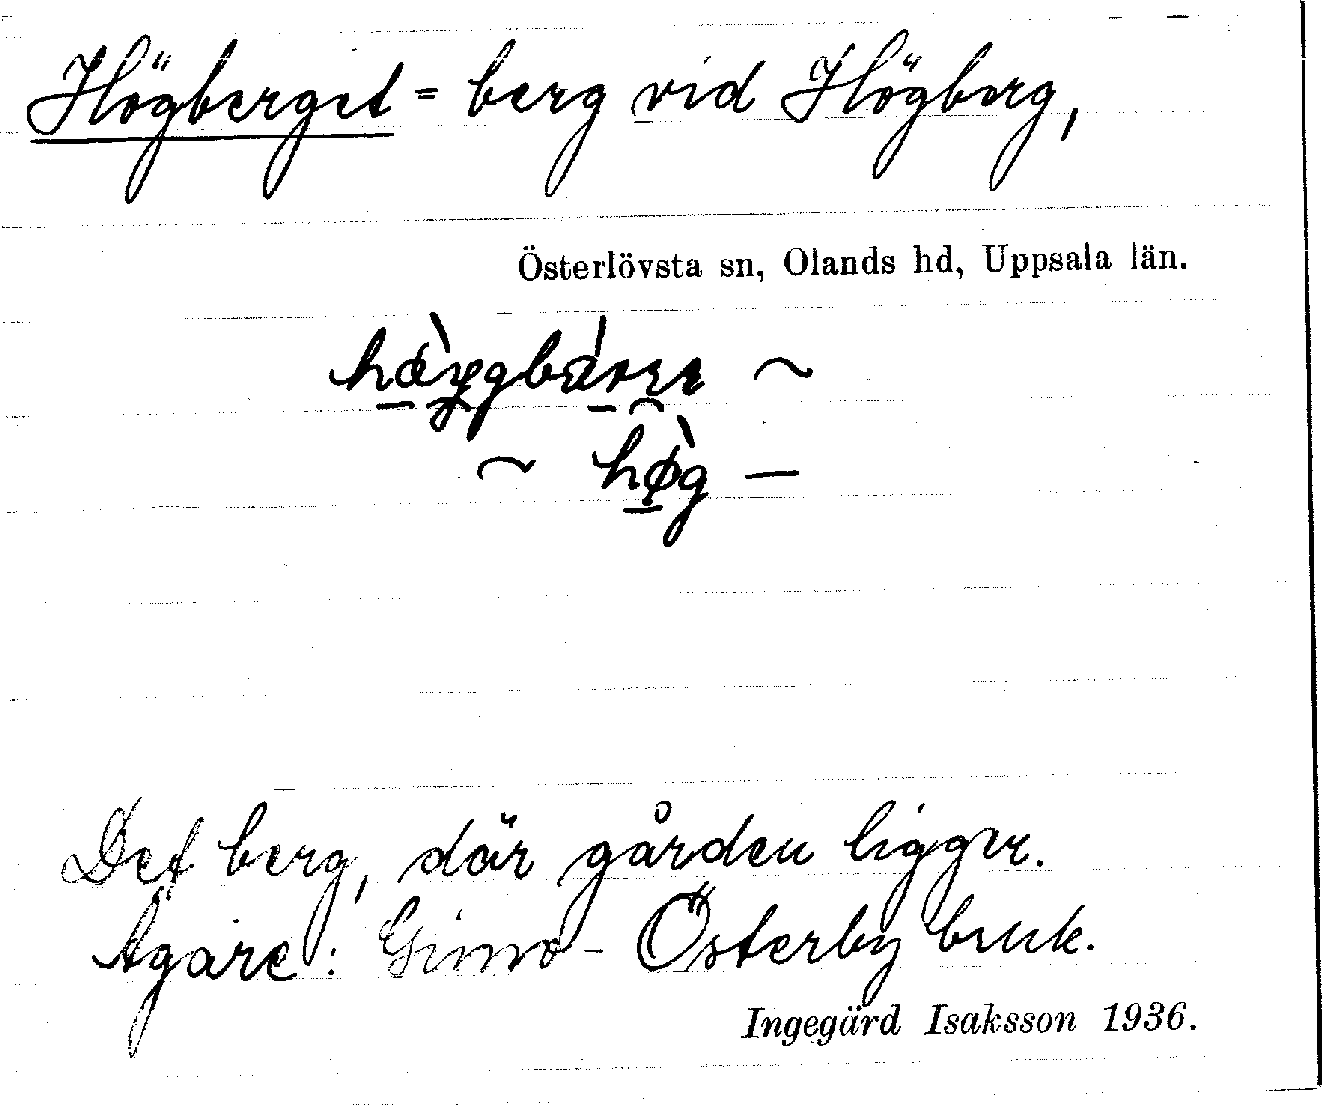 Högberget = berg vid Högberg,
Österlövsta sn, Olands hd, Uppsala län.
~
~ hø̀g —
Det berg, där gården ligger.
Ägare: Gimo-Österby bruk.
Ingegärd Isaksson 1936.